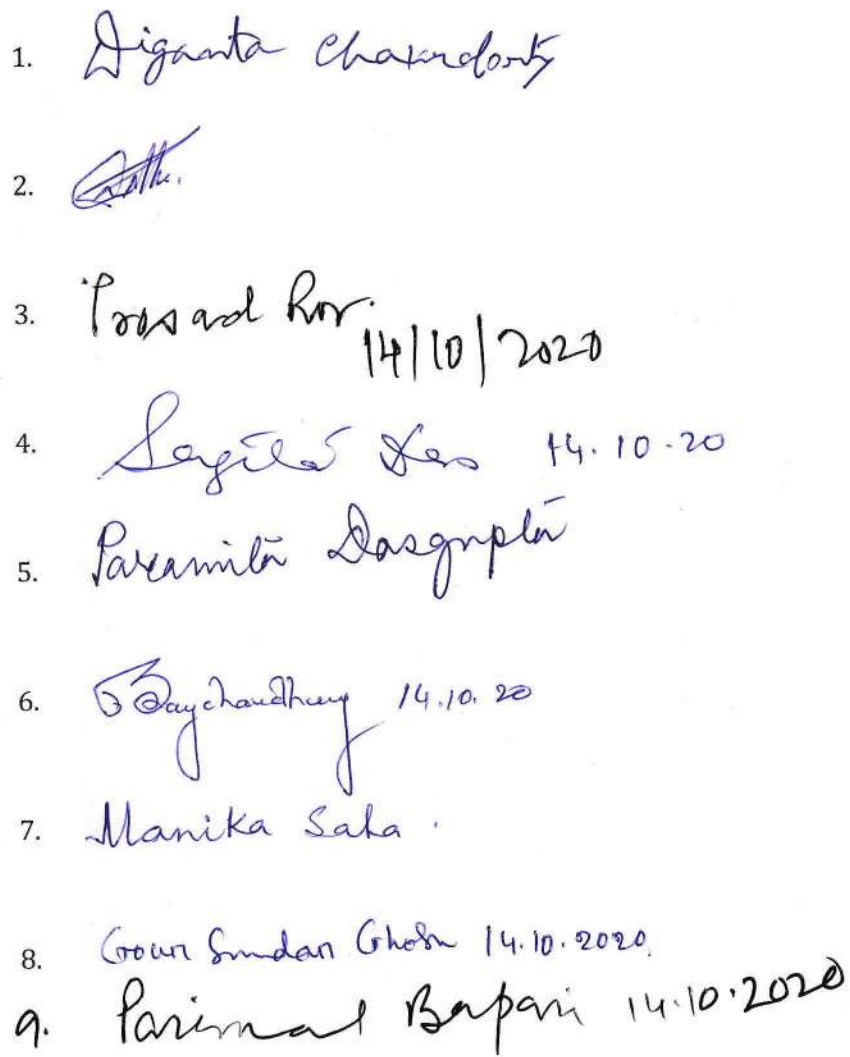 1. Diganta Chakraborty
2.
3. Prosad Roy.
14/10/2020
4. Das 14.10.20
5. Paramita Dasgupta
6. Raychaudhury 14.10.20
7. Manika Saha.
8. Gour Sundar Ghosh 14.10.2020
9. Parimal Bapari 14.10.2020